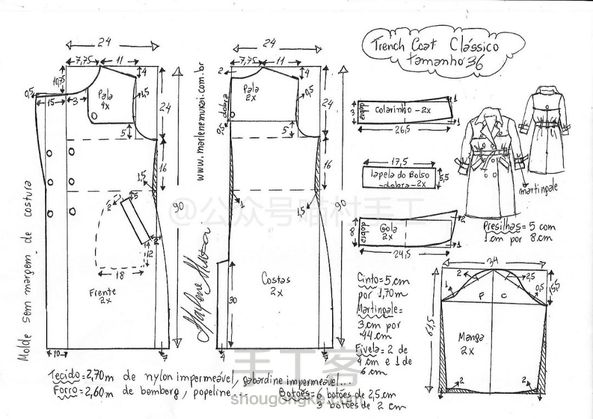 Trench Coat Clássico
tamanho 36
24
7,75
11
4
10,75
0,5
15
3
Pala
4x
1,5
24
5
16
1,5
90
2
5
14
12
2
18
Frente
2x
10
3
Molde sem margem de costura
www.marlenemukai.com.br
Marlene Mukai
24
7,75
11
2
4
Pala
2x
dobra
0,5
24
5
16
1,5
90
Costas
2x
90
3
3
dobra
Colarinho - 2x
1
1
26,5
17,5
Tapela do Bolso
dobra - 2x
5,5
8
dobra
Gola
2x
2
1
24,5
martingale
Presilhas = 5 com
1 cm por 8 cm
Cinto = 5 cm
por 1,70 m
Martingale =
3 cm por
44 cm
Fivela = 2 de
4 cm e 1 de
6 cm
34
2
2,5
1
0,5
F
C
61,5
Manga
2x
2
2
Tecido = 2,70 m de nylon impermeável, gabardine impermeável...
Forro = 2,60 m de bemberg, popeline... Botões = 6 botões de 2,5 cm
3 botões de 2 cm
手工客
shougongke.com